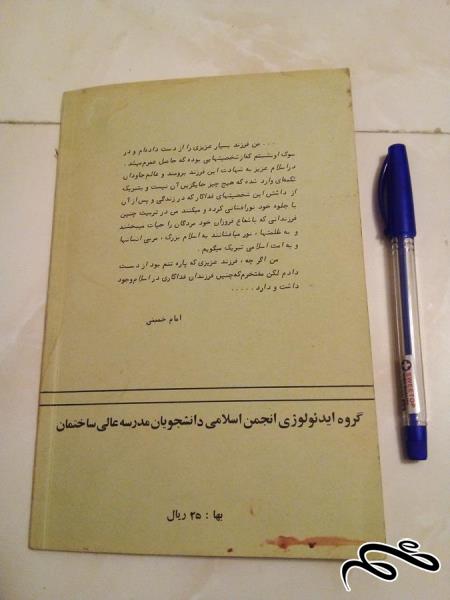 ... من فرزند بسیار عزیزی را از دست داده‌ام و در
سوک او نشستم که از شخصیتهایی بوده که حاصل عمرم میشد.
در اسلام عزیز به شهادت این فرزند برومند و عالم جاودان
ثلمه‌ای وارد شده که هیچ چیز جایگزین آن نیست و تبریک
از داشتن این شخصیتهای فداکار که در زندگی و پس از آن
با جلوه خود نورافشانی کرده و میکنند من در تربیت چنین
فرزندانی که با شعاع فروزان خود مردگان را حیات میبخشند
و به ظلمتها، نور میافشانند به اسلام بزرگ، مربی انسانها
و به امت اسلامی تبریک میگویم.
من اگر چه، فرزند عزیزی که پاره تنم بود از دست
دادم لکن مفتخرم که چنین فرزندان فداکاری در اسلام وجود
داشت و دارد .....
امام خمینی
گروه ایدئولوژی انجمن اسلامی دانشجویان مدرسه عالی ساختمان
بها : ۲۵ ریال